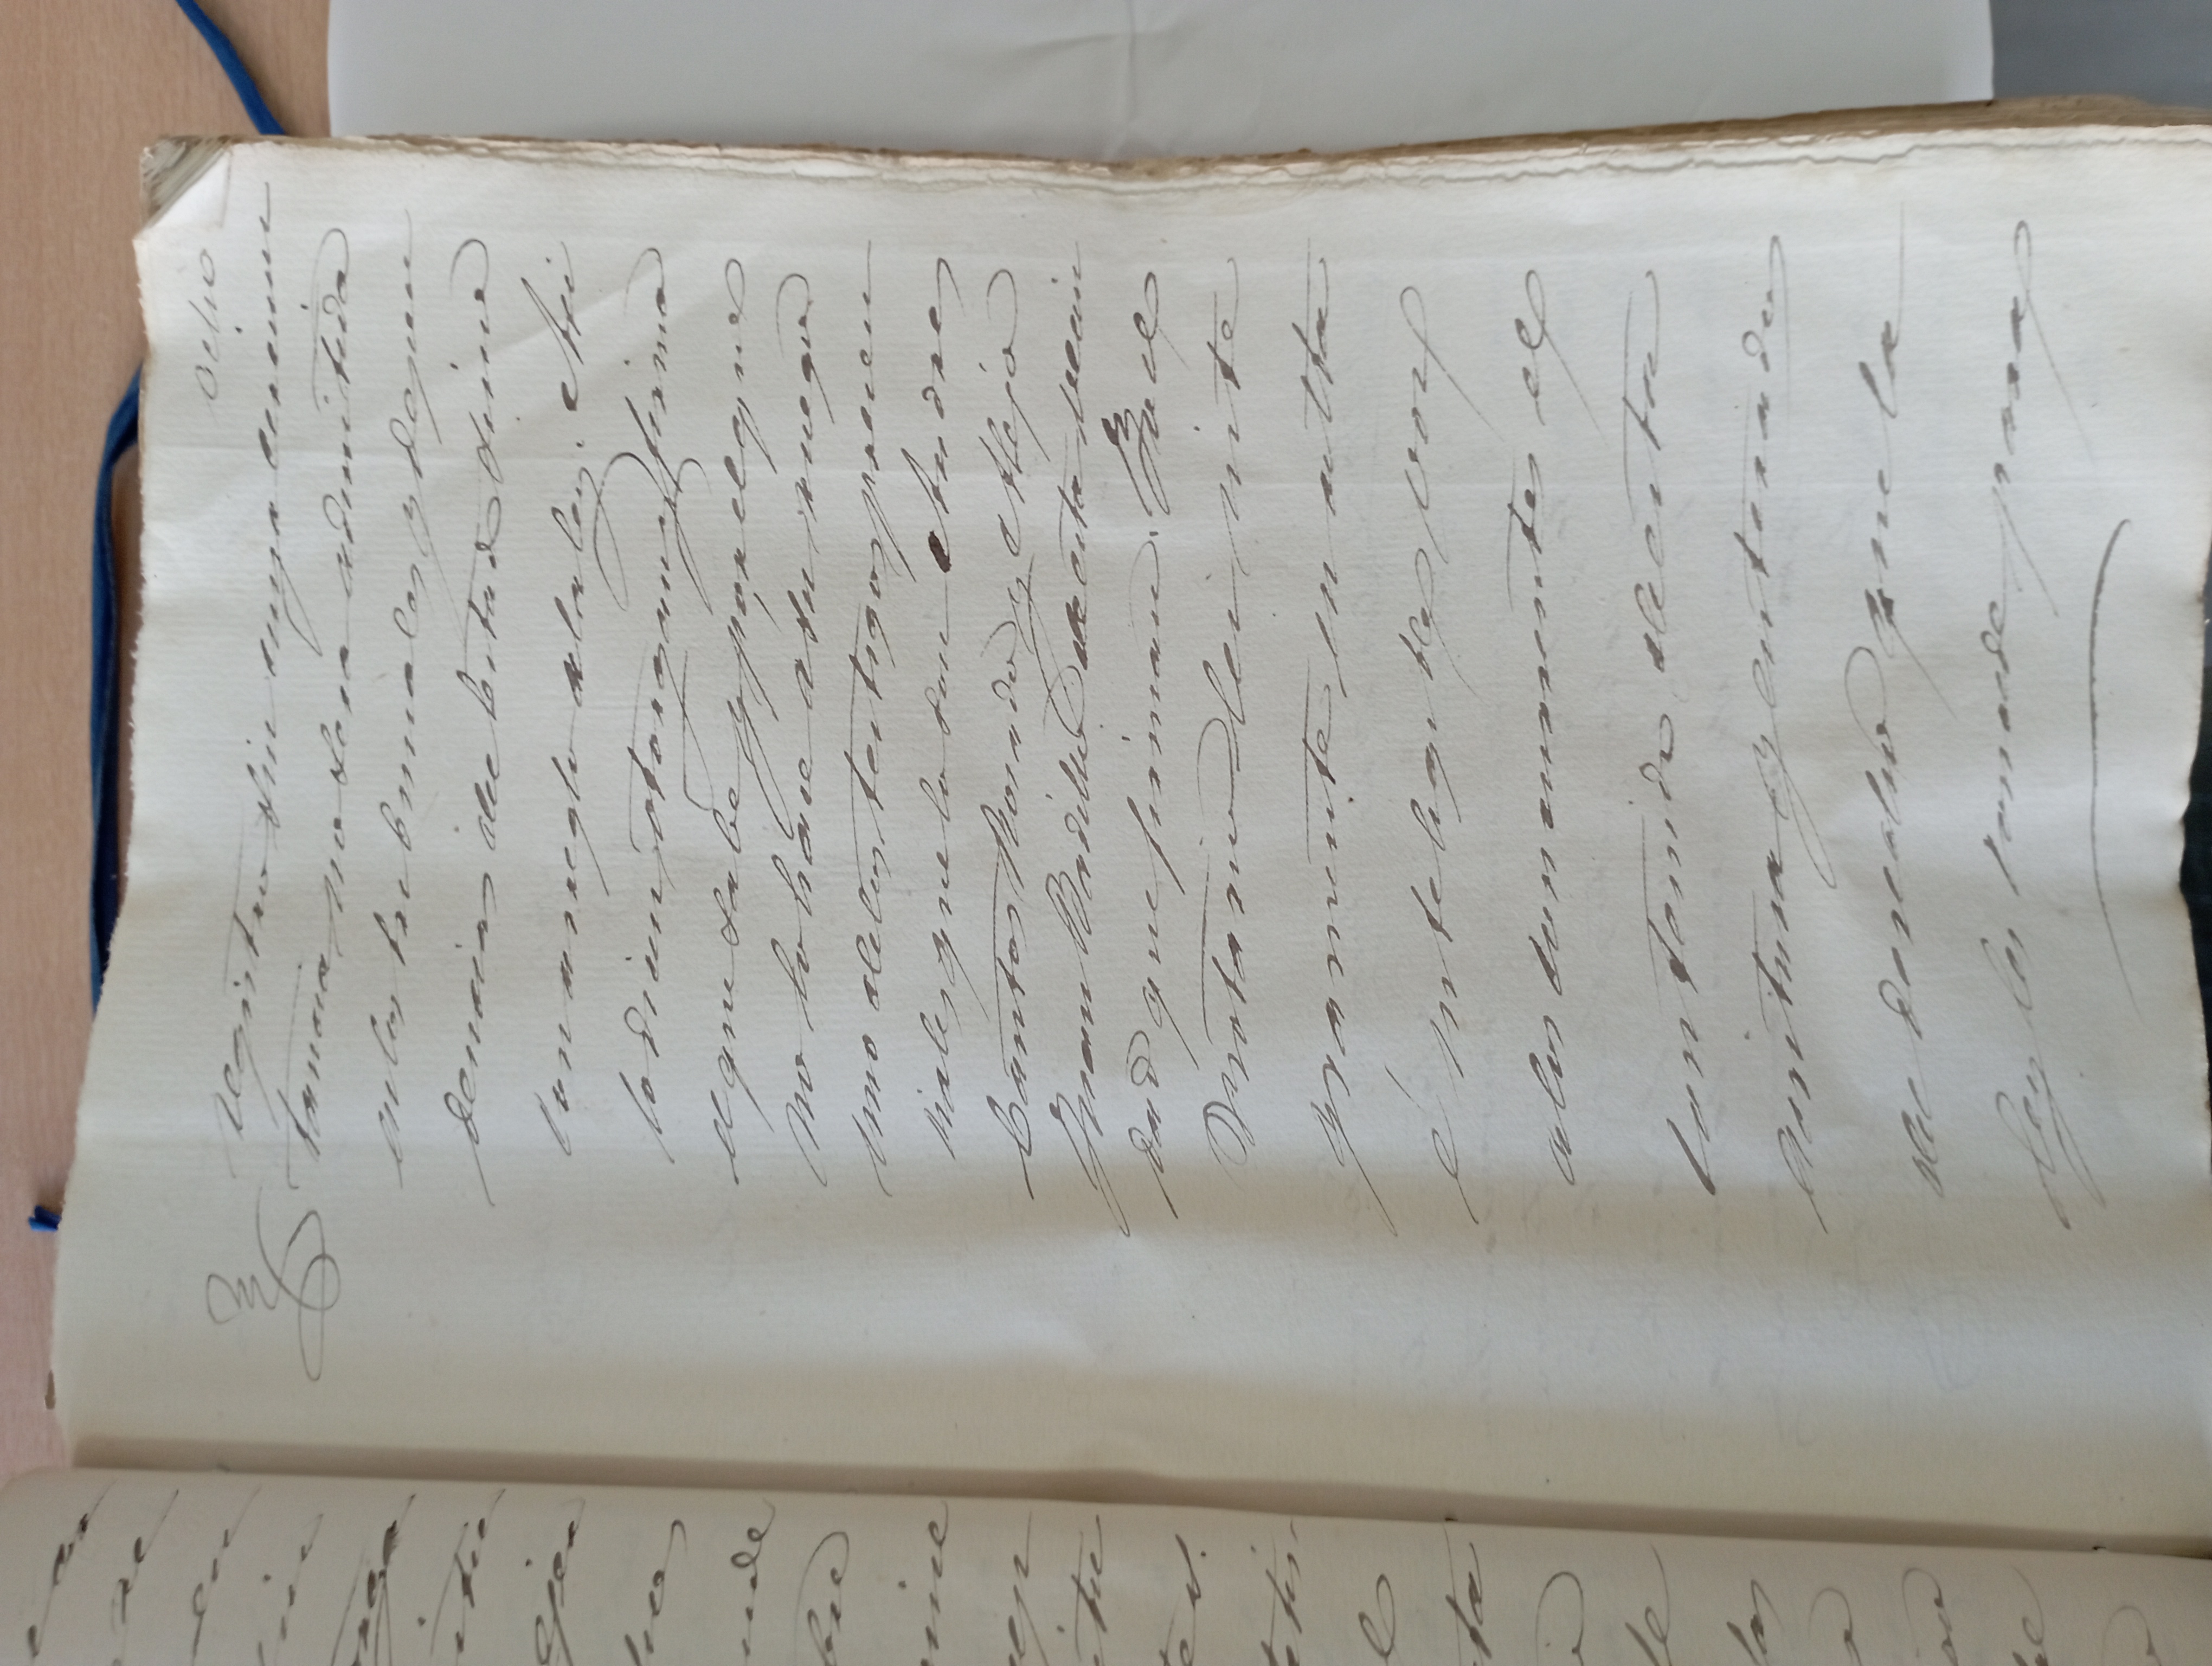 ocho
registro sin cuya circuns
tancia no sera admitida
en los tribunales y depen
dencias del Estado sino
con arreglo a la ley. Asi
lo dicen otorgan y firma
el que sabe y por el que
no lo hace á su ruego
uno de los testigos presen
ciales que lo son Andres
Cantos Rosado y Alejo
Juan Badillo de esta vecin
dad que firman. Yo el
Notario lei inte
gramente en alta
é inteligible voz
a los concurrentes el
contenido de esta
escritura y enterados
del derecho que la
ley les concede para